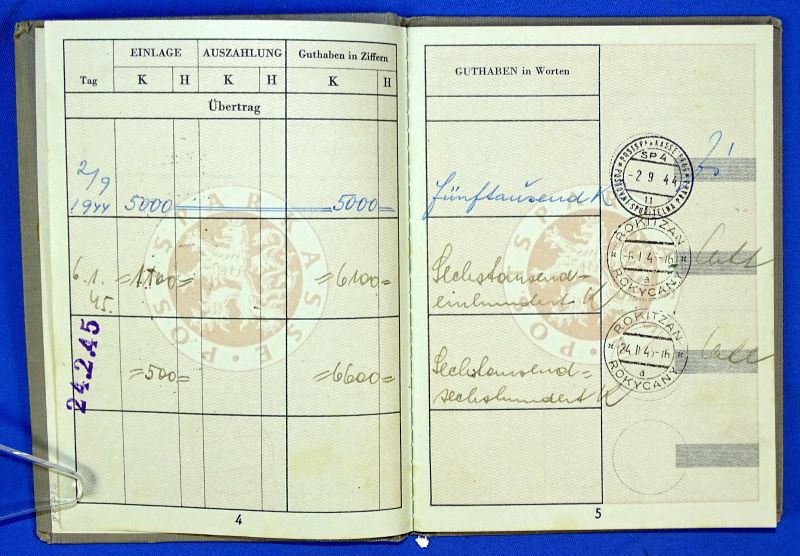 EINLAGE AUSZAHLUNG Guthaben in Ziffern
Tag K H K H K H
Übertrag
2/9
1944 5000 5000
6.1.
45. =1100= =6100=
24.2.45 =500= =6600=
POSTSPARKASSE
4
GUTHABEN in Worten
Fünftausend K
Sechstausend=
einhundert K
Sechstausend=
sechshundert K
POSTSPARKASSE
POSTSPARKASSE PRAG
SP 4
-2.9.44
11
POŠTOVNÍ SPOŘITELNA PRAHA
ROKITZAN
-6.I.45-16
a
ROKYCANY
ROKITZAN
24.II.45-16
a
ROKYCANY
5